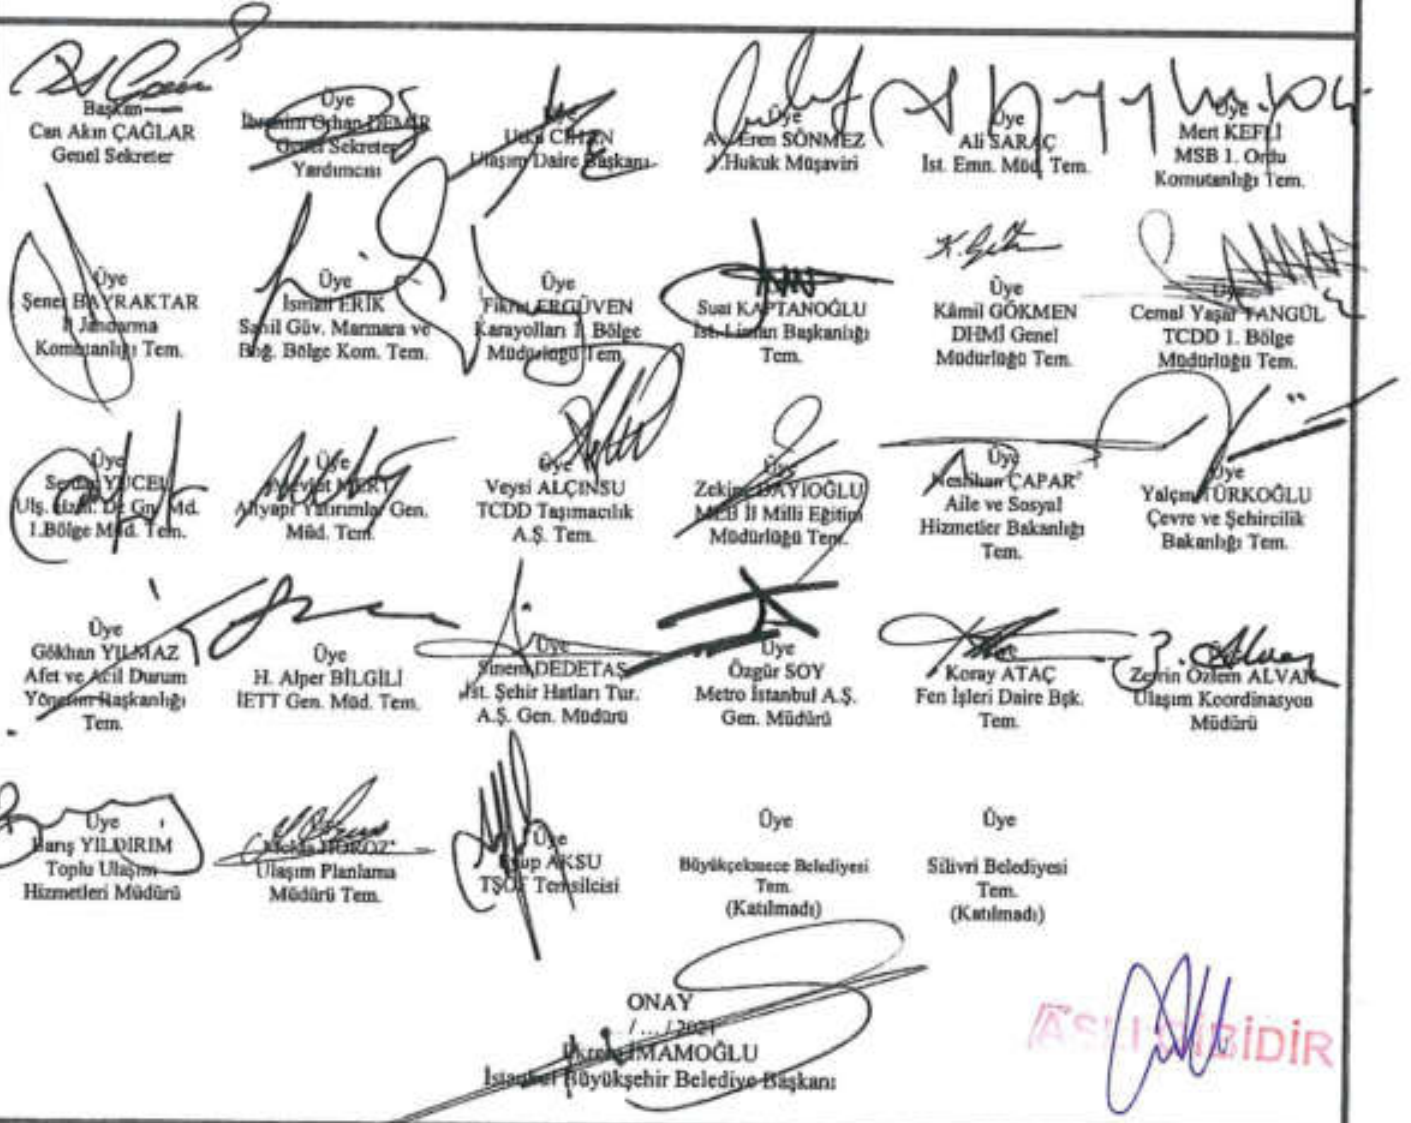 Başkan
Can Akın ÇAĞLAR
Genel Sekreter
Üye
İbrahim Orhan DEMİR
Genel Sekreter
Yardımcısı
Utku CİHAN
Ulaşım Daire Başkanı
Üye
Av. Eren SÖNMEZ
1.Hukuk Müşaviri
Üye
Ali SARAÇ
İst. Emn. Müd. Tem.
Üye
Mert KEFLİ
MSB 1. Ordu
Komutanlığı Tem.
Üye
Şener BAYRAKTAR
İl Jandarma
Komutanlığı Tem.
Üye
İsmail ERİK
Sahil Güv. Marmara ve
Boğ. Bölge Kom. Tem.
Üye
Fikret ERGÜVEN
Karayolları 1. Bölge
Müdürlüğü Tem.
Üye
Suat KAPTANOĞLU
İst. Liman Başkanlığı
Tem.
K.
Üye
Kâmil GÖKMEN
DHMİ Genel
Müdürlüğü Tem.
Üye
Cemal Yaşar TANGÜL
TCDD 1. Bölge
Müdürlüğü Tem.
Üye
Serdar YÜCEL
Ulş. Hizm. Dz Gn. Md.
1.Bölge Müd. Tem.
Üye
MERT
Altyapı Yatırımlar Gen.
Müd. Tem.
Üye
Veysi ALÇINSU
TCDD Taşımacılık
A.Ş. Tem.
Üye
DAYIOĞLU
MEB İl Milli Eğitim
Müdürlüğü Tem.
Üye
Neslihan ÇAPAR
Aile ve Sosyal
Hizmetler Bakanlığı
Tem.
Üye
Yalçın TÜRKOĞLU
Çevre ve Şehircilik
Bakanlığı Tem.
Üye
Gökhan YILMAZ
Afet ve Acil Durum
Yönetim Başkanlığı
Tem.
Üye
H. Alper BİLGİLİ
İETT Gen. Müd. Tem.
Üye
Sinem DEDETAŞ
İst. Şehir Hatları Tur.
A.Ş. Gen. Müdürü
Üye
Özgür SOY
Metro İstanbul A.Ş.
Gen. Müdürü
Koray ATAÇ
Fen İşleri Daire Bşk.
Tem.
Özlem ALVAN
Ulaşım Koordinasyon
Müdürü
Üye
Barış YILDIRIM
Toplu Ulaşım
Hizmetleri Müdürü
HOROZ
Ulaşım Planlama
Müdürü Tem.
Üye
Eyup AKSU
TŞOF Temsilcisi
Üye
Büyükçekmece Belediyesi
Tem.
(Katılmadı)
Üye
Silivri Belediyesi
Tem.
(Katılmadı)
ONAY
/ ... / 2021
Ekrem İMAMOĞLU
İstanbul Büyükşehir Belediye Başkanı
ASLI GİBİDİR